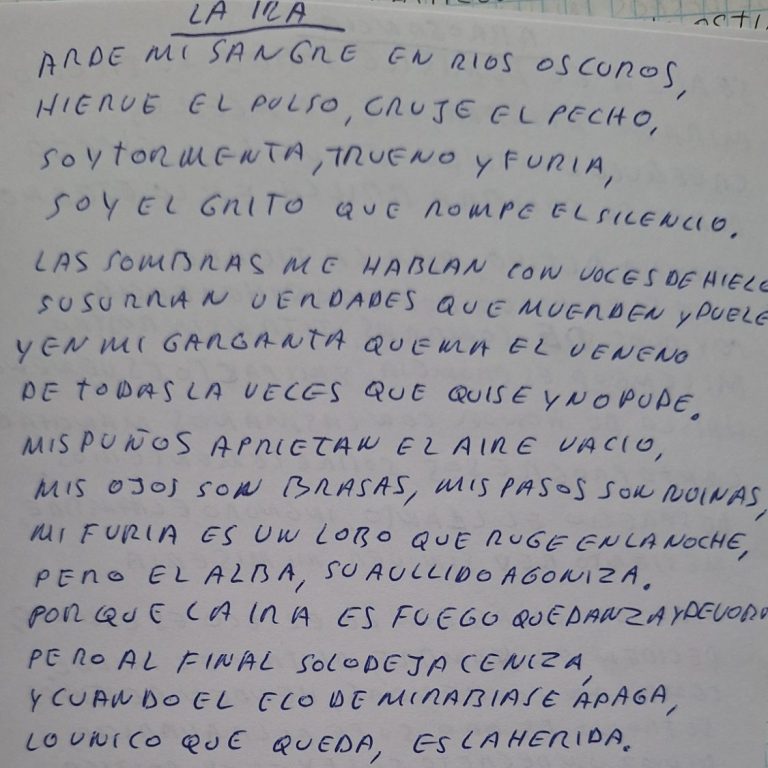 LA IRA
ARDE MI SANGRE EN RIOS OSCUROS,
HIERVE EL PULSO, CRUJE EL PECHO,
SOY TORMENTA, TRUENO Y FURIA,
SOY EL GRITO QUE ROMPE EL SILENCIO.
LAS SOMBRAS ME HABLAN CON VOCES DE HIELO
SUSURRAN VERDADES QUE MUERDEN Y DUELE
Y EN MI GARGANTA QUEMA EL VENENO
DE TODAS LA VECES QUE QUISE Y NO PUDE.
MIS PUÑOS APRIETAN EL AIRE VACIO,
MIS OJOS SON BRASAS, MIS PASOS SON RUINAS,
MI FURIA ES UN LOBO QUE RUGE EN LA NOCHE,
PERO EL ALBA, SU AULLIDO AGONIZA.
PORQUE LA IRA ES FUEGO QUE DANZA Y DEVORA
PERO AL FINAL SOLO DEJA CENIZA,
Y CUANDO EL ECO DE MI RABIA SE APAGA,
LO UNICO QUE QUEDA, ES LA HERIDA.